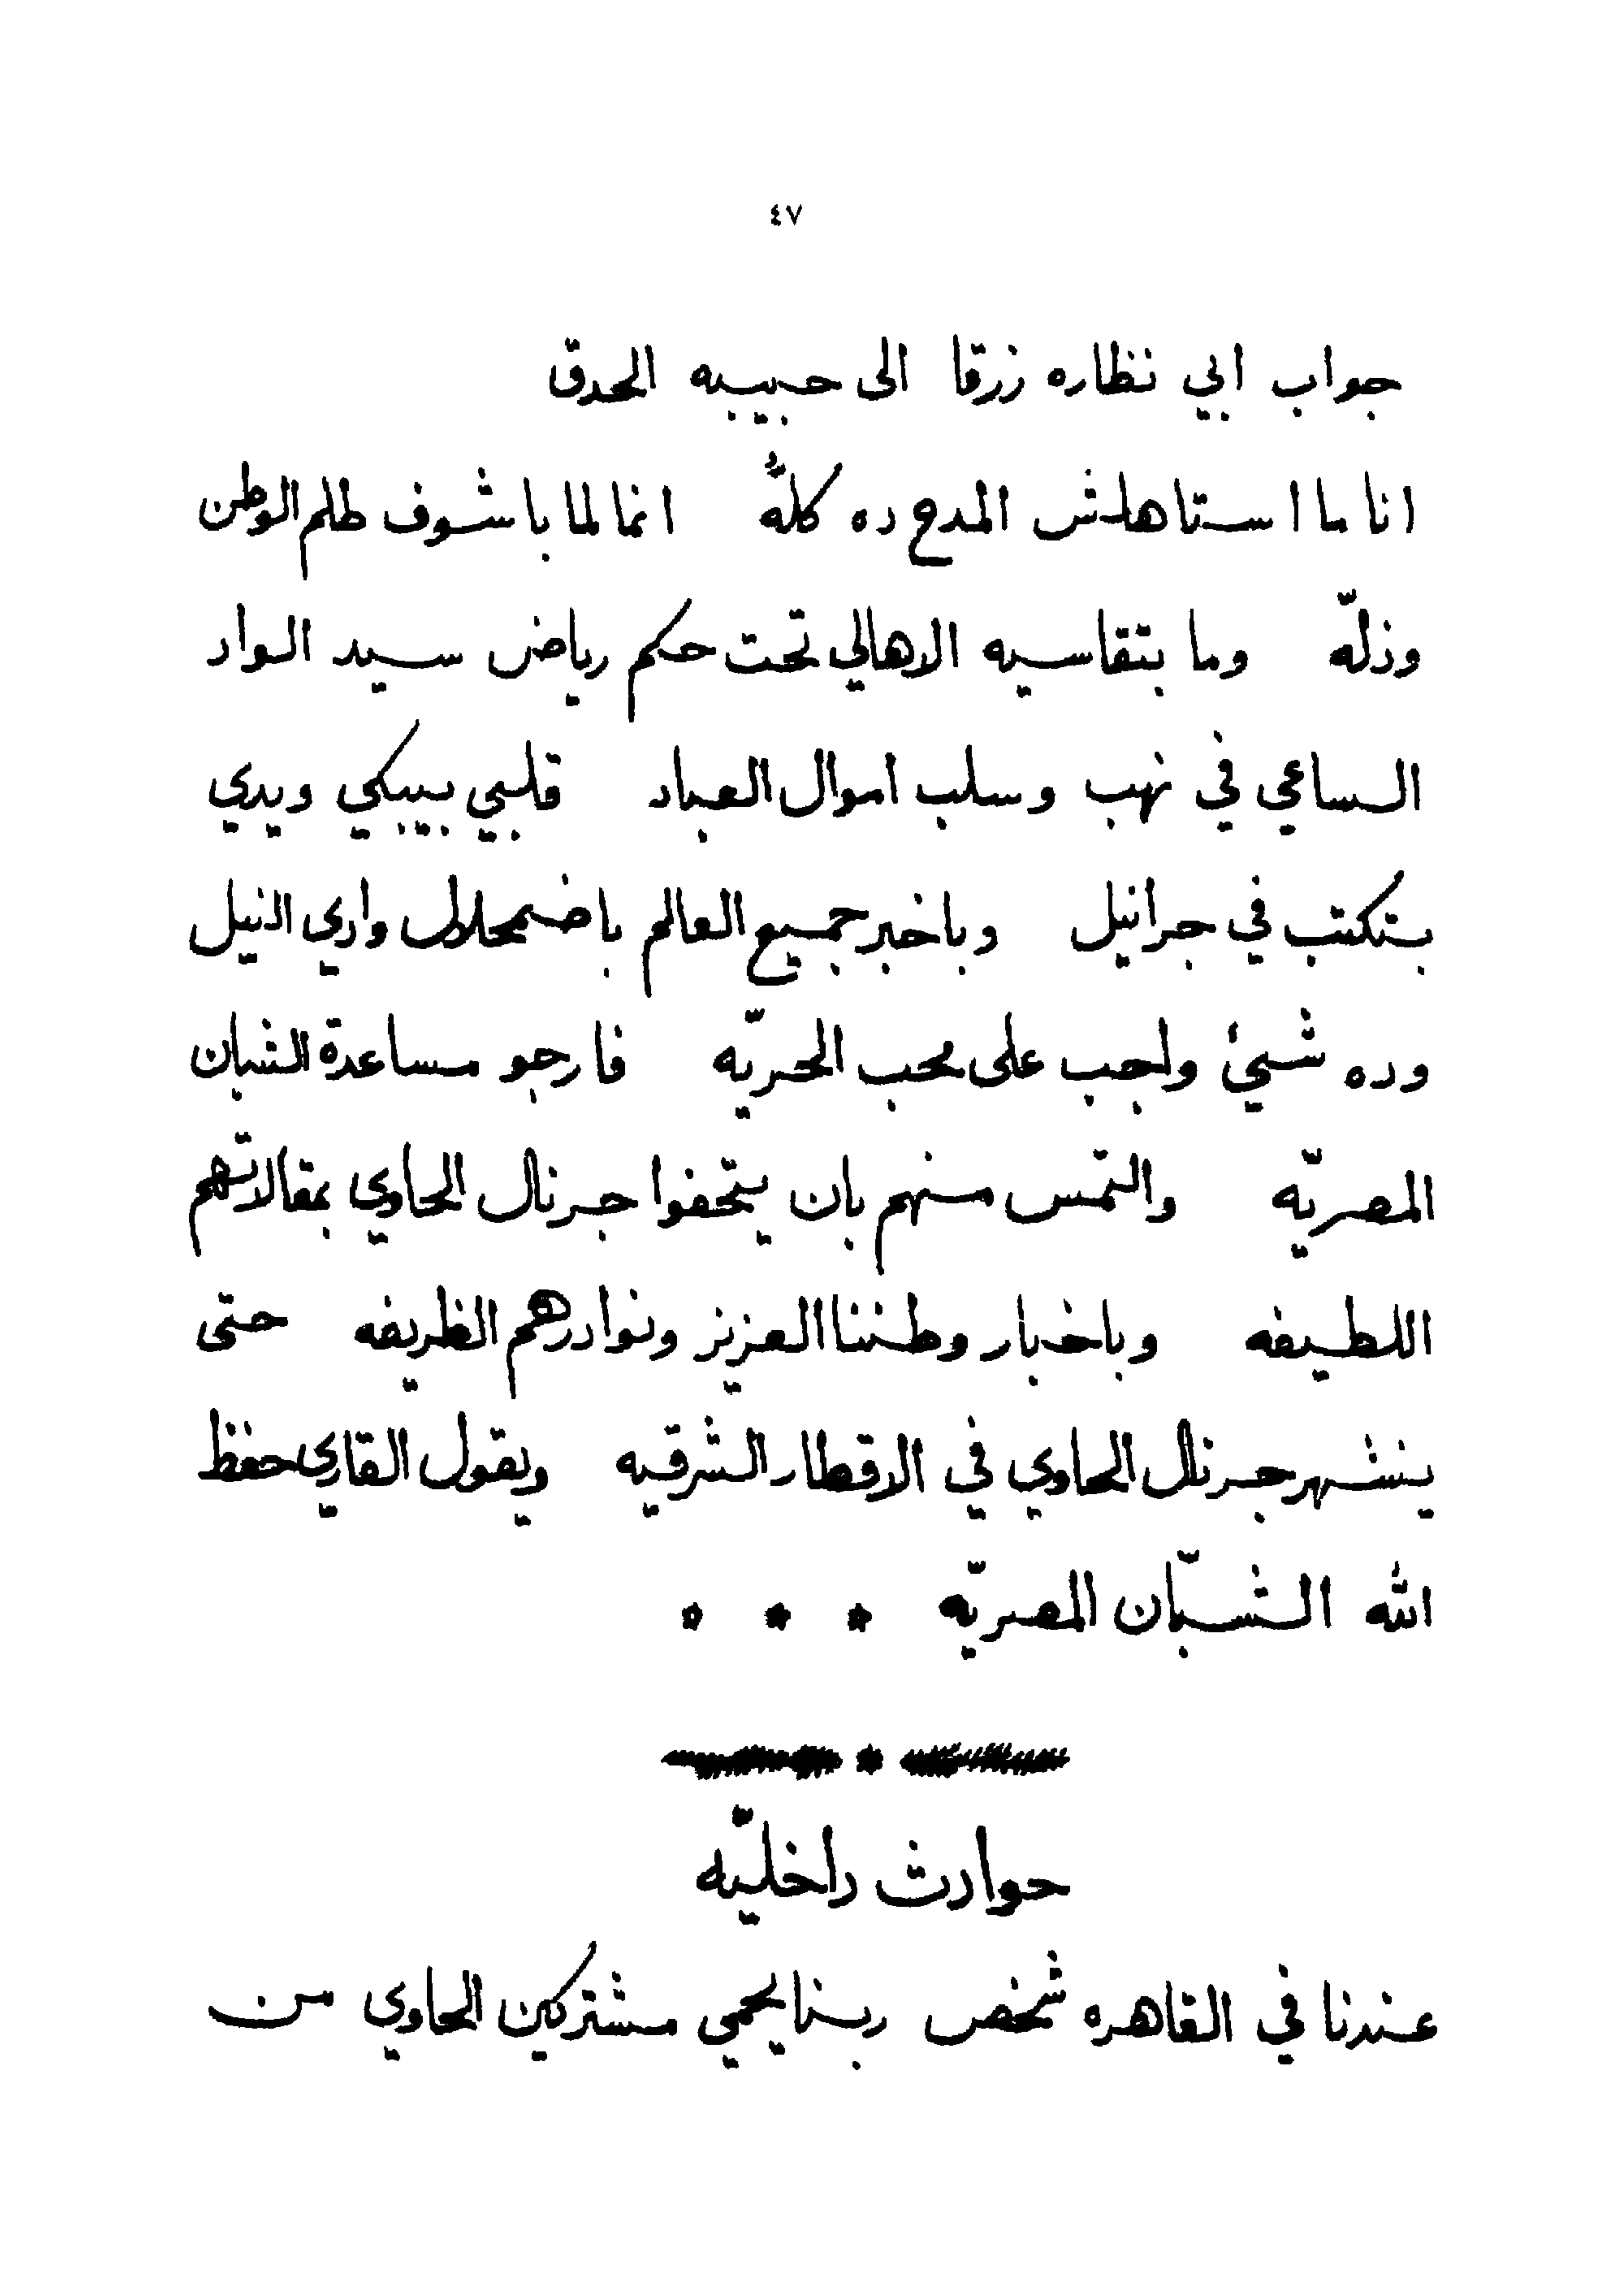 ٤٧
جواب ابي نظاره زرقا الى حبيبه الحدق
انا ما استاهلش المدح ده كلهُّ انما لما باشوف ظلم الوطن
وذلّه وما بتقاسيه الاهالي تحت حكم رياض سيد الواد
الساعي في نهب وسلب اموال العباد قلبي بيبكي ويدي
بتكتب في جرانيل وباخبر جميع العالم باضمحلال وادي النيل
وده شيئ واجب على محب الحريّه فارجو مساعدة الشبان
المصريّه والتمس منهم بان يتحفوا جرنال الحاوي بمقالاتهم
اللطيفه وباخبار وطننا العزيز ونوادرهم الظريفه حتى
ينشهر جرنال الحاوي في الاقطار الشرقيه ويقول القاري حفظ
الله الشبّان المصريّه * * *
حوادث داخليّه
عندنا في القاهره شخص ربنا يحمي مشتركين الحاوي من